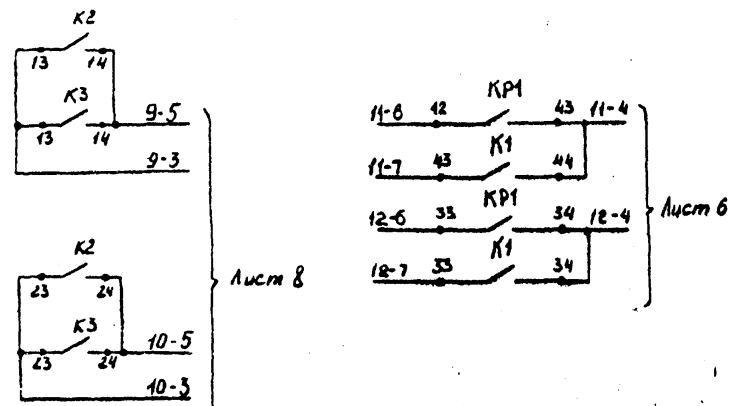 К2
13 14
К3
13 14 9-5
9-3
К2
23 24
К3
23 24 10-5
10-3
Лист 8
КР1
11-6 42 43 11-4
К1
11-7 43 44
КР1
12-6 33 34 12-4
К1
12-7 33 34
Лист 6